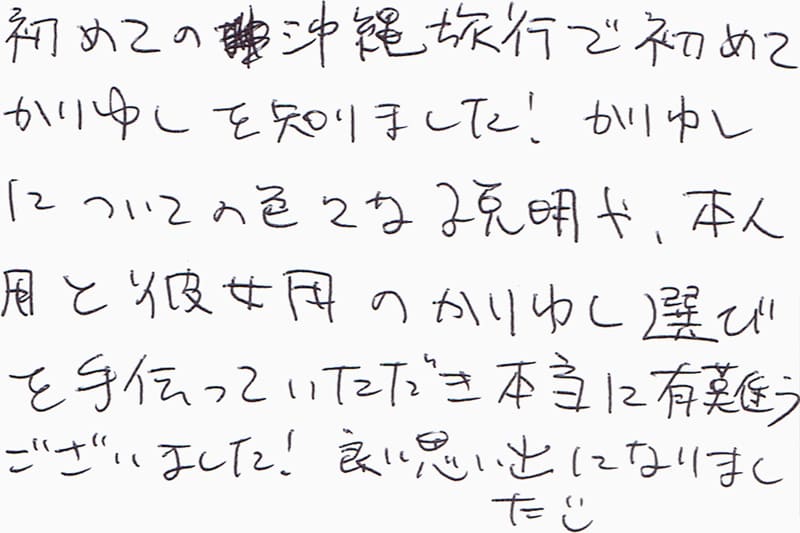 初めての沖縄旅行で初めて
かりゆしを知りました! かりゆし
についての色々な説明や、本人
用と彼女用のかりゆし選び
を手伝っていただき本当に有難う
ございました! 良い思い出になりまし
た